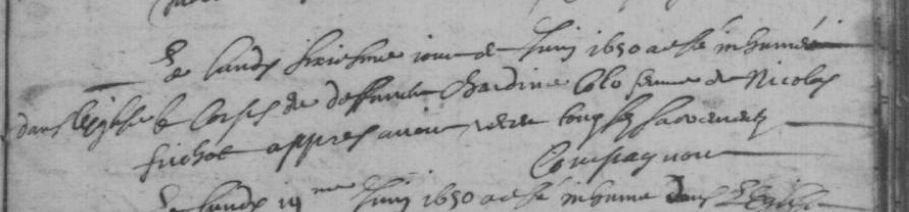 Le lundy sixiesme iour de Juin 1650 a esté inhumée
dans l'esglise le corps de deffuncte Claudine Colo femme de Nicolas
fichot appres avoir receu tous les sacrements
Compagnon
Le lundy 19me Juin 1650 a esté inhumé dans l'Eglise